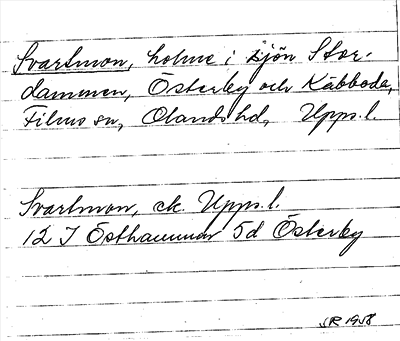 Svartmon, holme i sjön Stor-
dammen, Österby och Käbboda,
Films sn, Olands hd, Upps. l.
Svartmon, ek. Upps. l.
12 I Östhammar 5d Österby
SR 1958